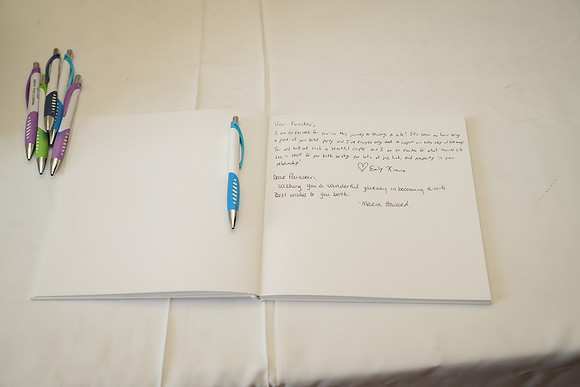 Dear
I am so excited for you in this journey to becoming a wife! It's been an honor being
a part of your bridal party and I've enjoyed being able to support you every step of the way.
You and will make such a beautiful couple and I am so excited for what married life
has in store for you both. Wishing you lots of joy, luck, and prosperity in your
relationship!
♡ Emily
Dear
Wishing you a wonderful journey in becoming a wife.
Best wishes to you both.
- Maria Howard